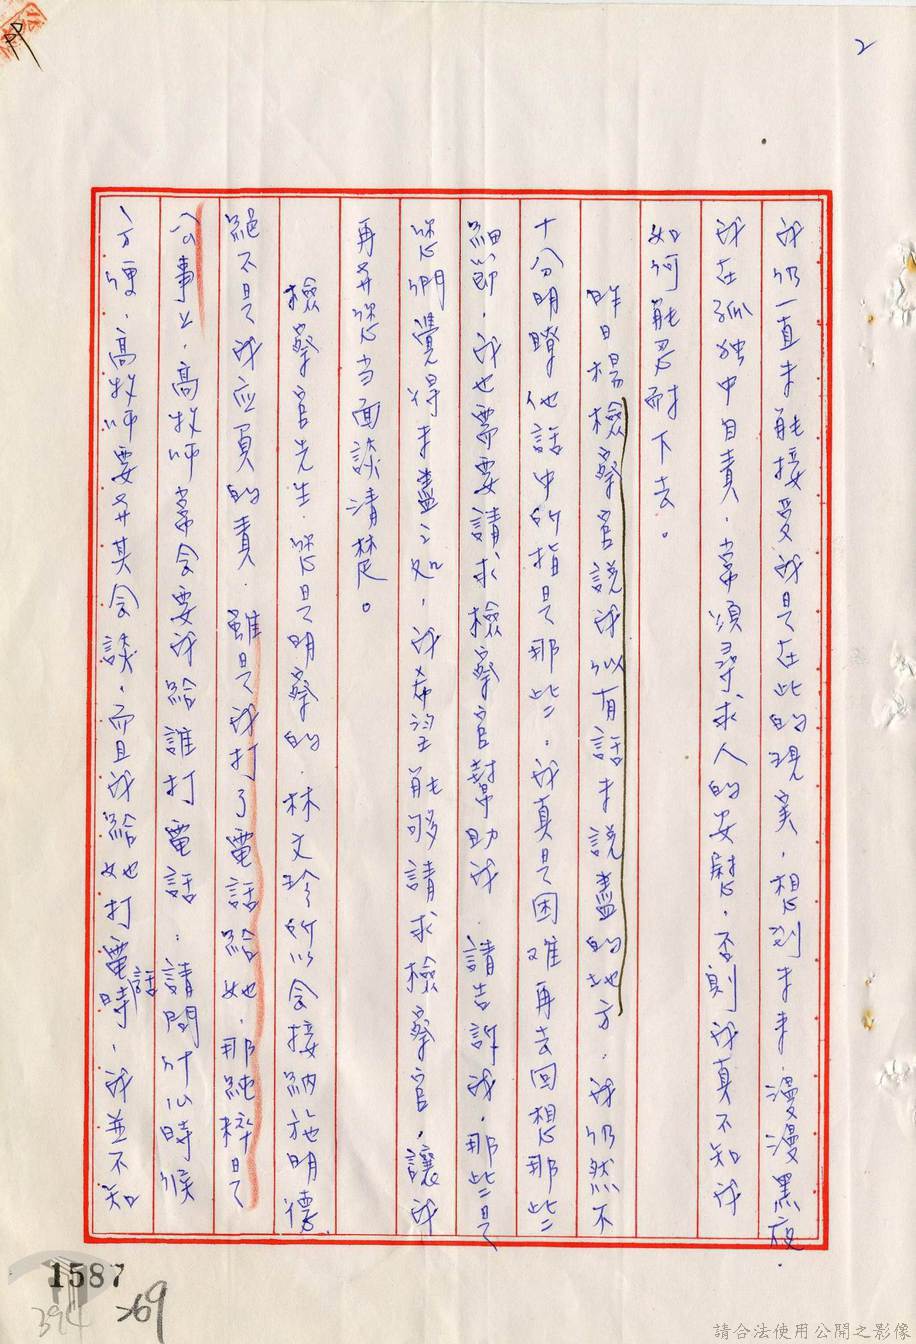 2
我仍一直未能接受我是在此的現実,想到未来,漫漫黑夜.
我在孤独中自責,常須尋求人的安慰,否則我真不知我
如何能忍耐下去。
昨日楊檢察官說我似有話未說盡的地方.我仍然不
十分明瞭他話中所指是那些.我真是困难再去回想那些
細節,我也需要請求檢察官幫助我.請告訴我,那些是
您們覺得未盡之処,我希望能够請求檢察官,讓我
再与您当面談清楚。
檢察官先生.您是明察的.林文珍所以会接納施明德,
絕不是我应負的責.雖是我打了電話給她,那純粹是
公事上,高牧师常会要我給誰打電話:請問什么時候
方便,高牧师要与其会談,而且我給她打電話時,我並不知
1587
394
269
請合法使用公開之影像